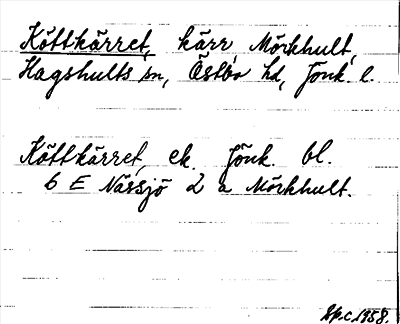 Köttkärret, kärr, Mörkhult,
Hagshults sn, Östbo hd, Jönk. l.
Köttkärret, ek. Jönk. bl.
6 E Nässjö 2 a Mörkhult.
Sp.c.1958.